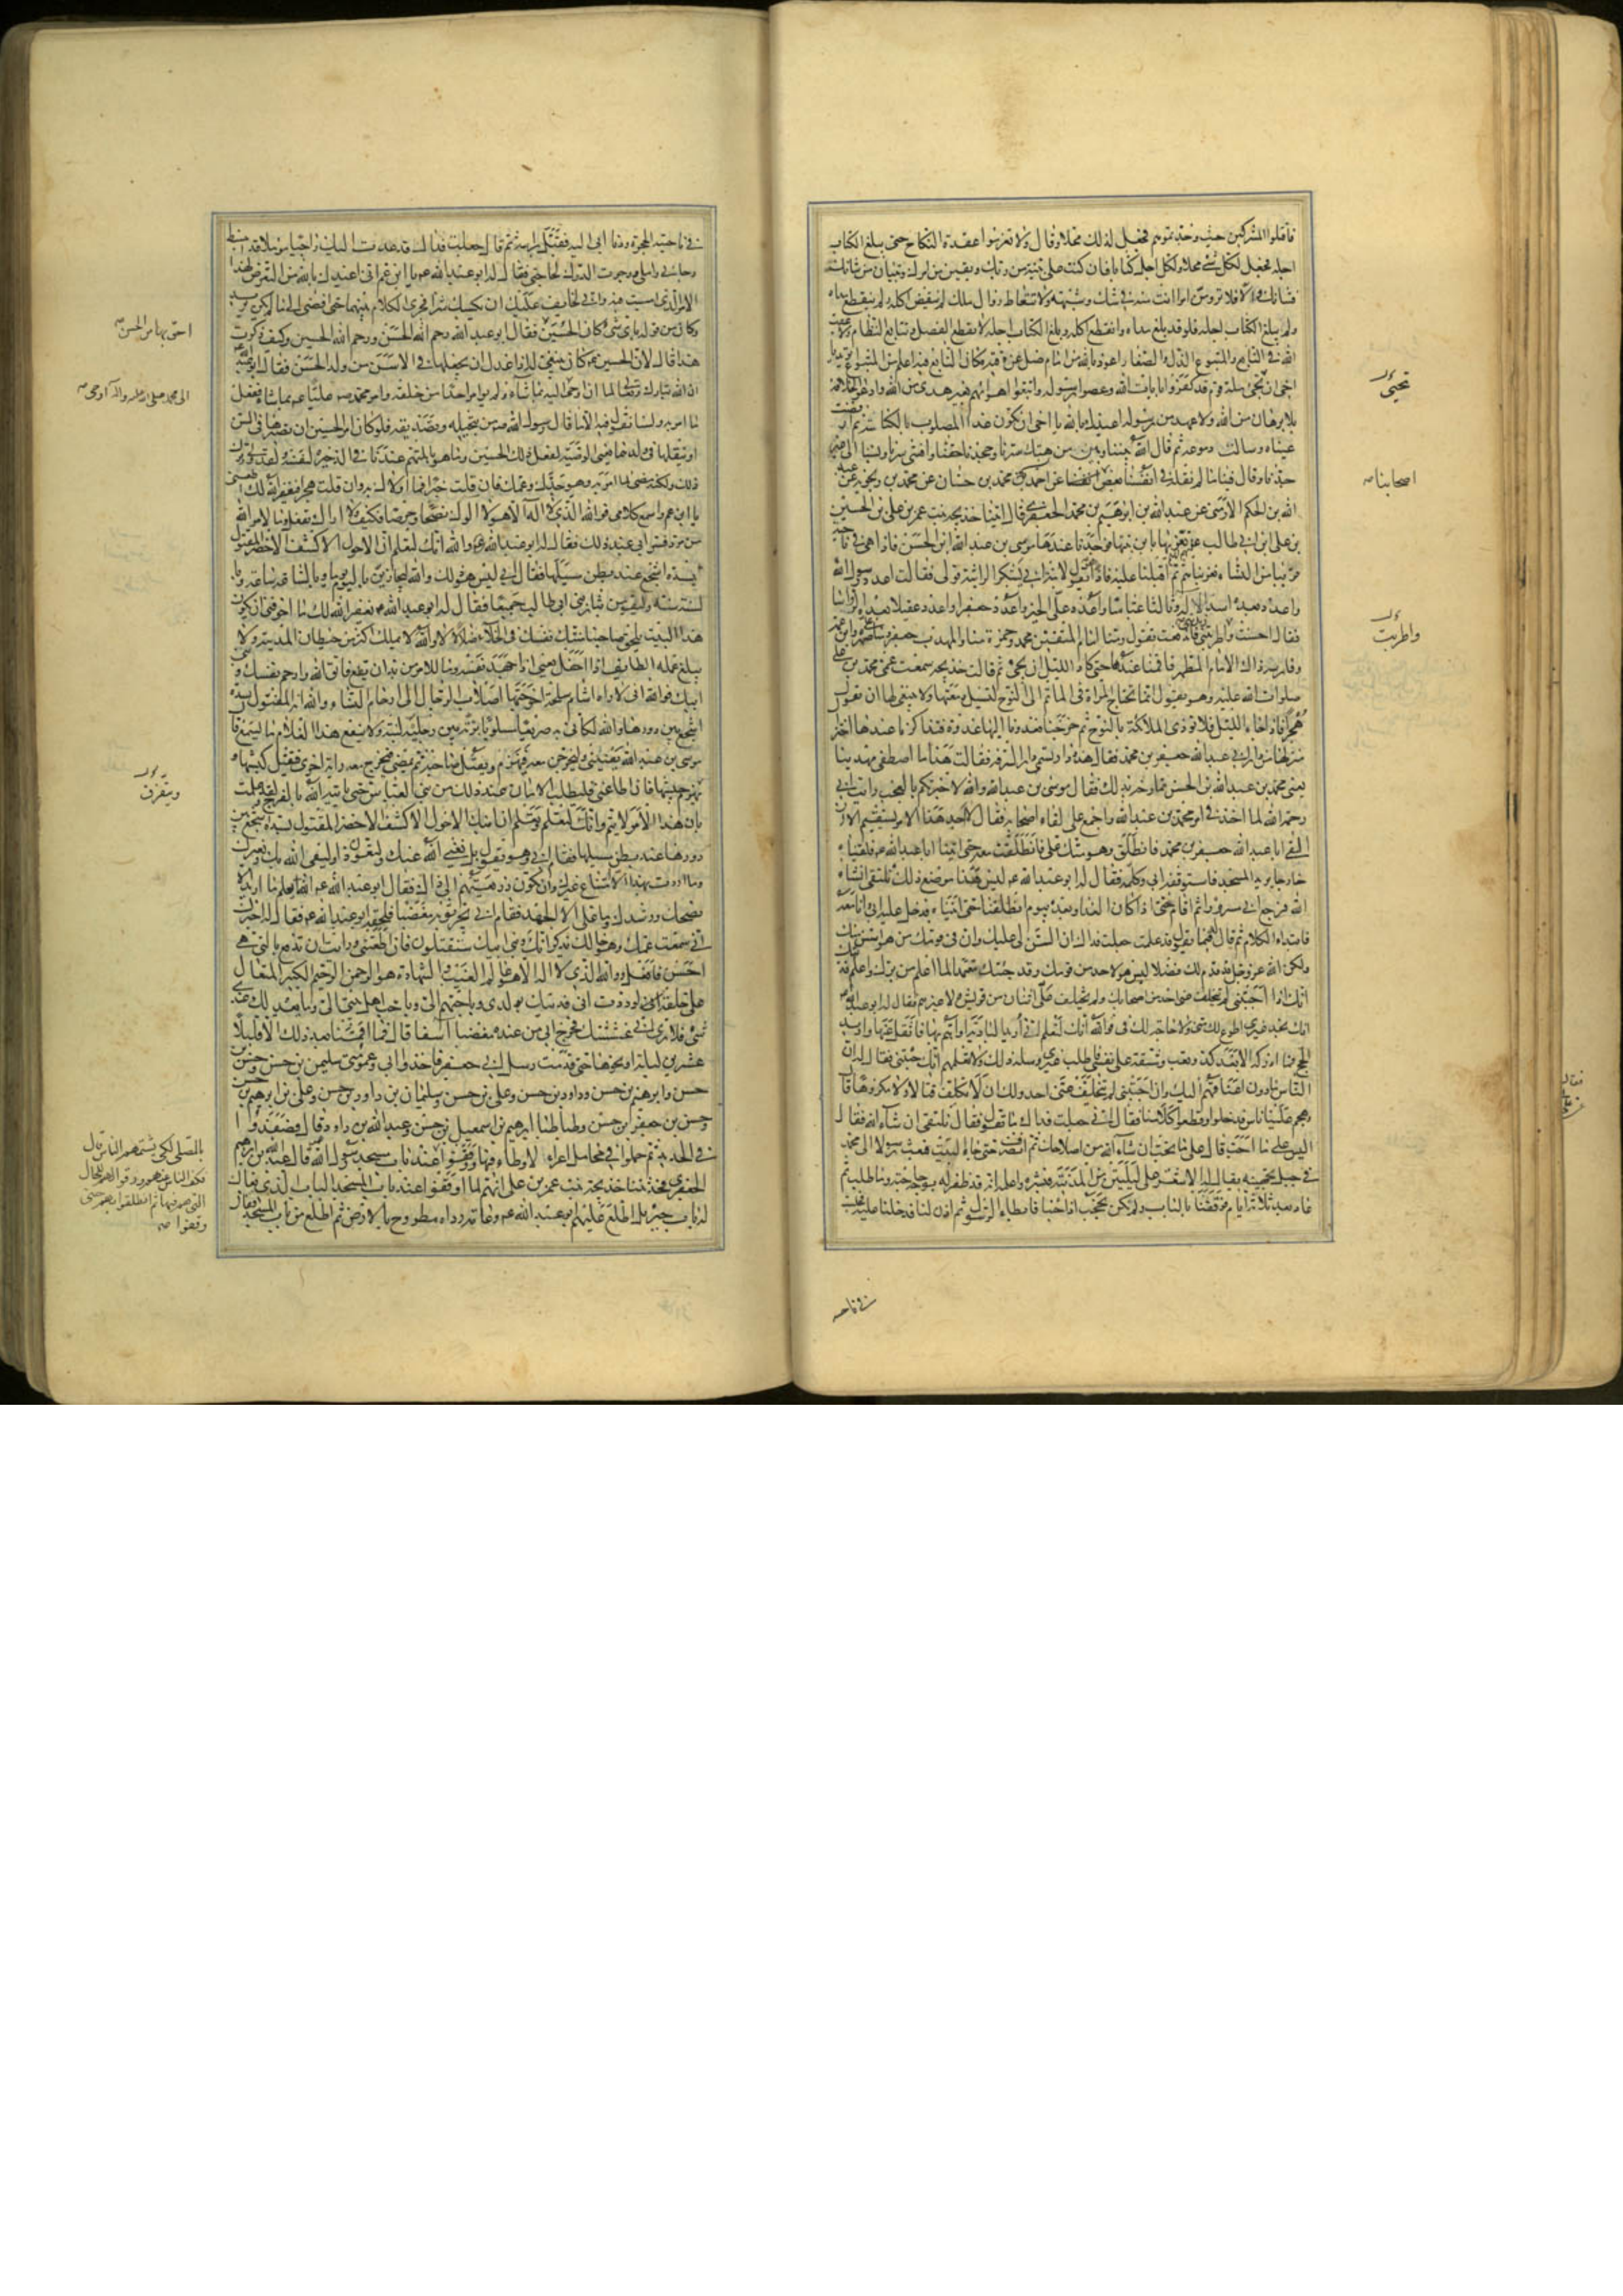 فاقتلوا المشركين حيث وجدتموهم فجعل لذلك محلا وقال ولا تعزموا عقدة النكاح حتى يبلغ الكتاب
اجله فجعل لكل شئ محلا ولكل اجل كتابا فان كنت على بينة من ربك ويقين من امرك وتبيان من شانك
فشانك والا فلا ترومن امرا انت منه في شك وشبهة ولا تتعاط زوال ملك لم ينقض اكله ولم ينقطع مداه
ولم يبلغ الكتاب اجله فلو قد بلغ مداه وانقطع اكله وبلغ الكتاب اجله لانقطع الفصل وتتابع النظام ولاعقب
الله في التابع والمتبوع الذل والصغار اعوذ بالله من امام ضل عن وقته فكان التابع فيه اعلم من المتبوع اتريد يا
اخي ان تحيي ملة قوم قد كفروا بايات الله وعصوا رسوله واتبعوا اهوائهم بغير هدى من الله وادعوا الخلافة
بلا برهان من الله ولا عهد من رسوله اعيذك بالله يا اخي ان تكون غدا المصلوب بالكناسة ثم ارفضت
عيناه وسالت دموعه ثم قال الله بيننا وبين من هتك سترنا وجحدنا حقنا وافشى سرنا ونسبنا الى غير
جدنا وقال فينا ما لم نقله في انفسنا بعض اصحابنا عن محمد بن حسان عن محمد بن رنجويه عن عبد
الله بن الحكم الارمني عن عبد الله بن ابرهيم بن محمد الجعفري قال اتينا خديجة بنت عمر بن علي بن الحسين
بن علي ابن ابي طالب ع نعزيها بابن بنتها فوجدنا عندها موسى بن عبد الله ابن الحسن فاذا هي في ناحية
قريبا من النساء فعزيناهم ثم اقبلنا عليه فاذا هو يقول لابنة ابي يشكر الراثية قولي فقالت اعدد رسول الله
واعدد بعده اسد الاله وثالثا عباسا واعدد علي الخير واعدد جعفرا واعدد عقيلا بعده الرواسا
فقال احسنت واطربتني زيديني فاندفعت تقول ومنا امام المتقين محمد وحمزة منا والمهذب جعفر ومنا علي صهره وابن عمه
وفارسه ذاك الامام المطهر فاقمنا عندها حتى كاد الليل ان يجئ ثم قالت خديجة سمعت عمي محمد بن علي
صلوات الله عليه وهو يقول انما تحتاج المراة في الماتم الى النوح لتسيل دمعتها ولا ينبغي لها ان تقول
هجرا فاذا جاء الليل فلا توذي الملائكة بالنوح ثم خرجنا فغدونا اليها غدوة فتذاكرنا عندها اختزال
منزلها من دار ابي عبد الله جعفر بن محمد فقال هذه دار تسمى دار السرقة فقالت هذا ما اصطفى مهدينا
يعني محمد بن عبد الله بن الحسن تمازحه بذلك فقال موسى بن عبد الله والله لاخبرنكم بالعجب رايت ابي
رحمه الله لما اخذ في امر محمد بن عبد الله واجمع على لقاء اصحابه فقال لا اجد هذا الامر يستقيم الا ان
القى ابا عبد الله جعفر بن محمد فانطلق وهو متك علي فانطلقت معه حتى اتينا ابا عبد الله ع فلقيناه
خارجا يريد المسجد فاستوقفه ابي وكلمه فقال له ابو عبد الله ع ليس هذا موضع ذلك نلتقي انشاء
الله فرجع ابي مسرورا ثم اقام حتى اذا كان الغد او بعده بيوم انطلقنا حتى اتيناه فدخل عليه ابي وانا معه
فابتدا الكلام ثم قال له فيما يقول قد علمت جعلت فداك ان السن لي عليك وان في قومك من هو اسن منك
ولكن الله عز وجل قد قدم لك فضلا ليس هو لاحد من قومك وقد جئتك معتمدا لما اعلم من برك واعلم فديتك
انك اذا اجبتني لم يتخلف عني احد من اصحابك ولم يختلف علي اثنان من قريش ولا غيرهم فقال له ابو عبد الله ع
انك تجد غيري اطوع لك مني ولا حاجة لك في فوالله انك لتعلم اني اريد البادية او اهم بها فاثقل عنها واريد
الحج فما ادركه الا بعد كد وتعب ومشقة على نفسي فاطلب غيري وسله ذلك ولا تعلمهم انك جئتني فقال له ان
الناس مادون اعناقهم اليك وان اجبتني لم يتخلف عني احد ولك ان لا تكلف قتالا ولا مكروها قال
وهجم علينا ناس فدخلوا وقطعوا كلامنا فقال ابي جعلت فداك ما تقول فقال نلتقي ان شاء الله فقال
اليس على ما احب قال على ما تحب ان شاء الله من اصلاحك ثم انصرف حتى جاء البيت فبعث رسولا الى محمد
في جبل بجهينة يقال له الاشقر على ليلتين من المدينة فبشره واعلمه انه قد ظفر له بوجه حاجته وما طلب ثم
عاد بعد ثلاثة ايام فوقفنا بالباب ولم نكن نحجب اذا جئنا فابطاء الرسول ثم اذن لنا فدخلنا عليه فجلست
تحيى
اصحابنا
واطربت
في ناحية
في ناحية الحجرة ودنا ابي اليه فقبل راسه ثم قال جعلت فداك قد عدت اليك راجيا موملا قد انبسط
رجائي واملي ورجوت الدرك لحاجتي فقال له ابو عبد الله ع يا ابن عم اني اعيذك بالله من التعرض لهذا
الامر الذي امسيت فيه واني لخائف عليك ان يكسبك شرا فجرى الكلام بينهما حتى افضى الى ما لم يكن يريد
وكان من قوله باي شئ كان الحسين فقال ابو عبد الله رحم الله الحسن ورحم الله الحسين وكيف ذكرت
هذا قال لان الحسين ع كان ينبغي له اذا عدل ان يجعلها في الاسن من ولد الحسن فقال ابو عبد الله ع
ان الله تبارك وتعالى لما ان اوحى اليه بما شاء ولم يوامر احدا من خلقه وامر محمد ص عليا ع بما شاء ففعل
ما امر به ولسنا نقول فيه الا ما قال رسول الله ص من تبجيله وتصديقه فلو كان امر الحسين ان يصيرها في الاسن
او ينقلها في ولدهما يعني الوصية لفعل ذلك الحسين وما هو بالمتهم عندنا في الذخيرة لنفسه ولقد ولى وترك
ذلك ولكنه مضى لما امر به وهو جدك وعمك فان قلت خيرا فما اولاك به وان قلت هجرا فيغفر الله لك اطعني
يا ابن عم واسمع كلامي فوالله الذي لا اله الا هو لا الوك نصحا وحرصا فكيف ولا اراك تفعل وما لامر الله
من مرد فسر ابي عند ذلك فقال له ابو عبد الله ع والله انك لتعلم انه الاحول الاكشف الاخضر المقتول
بسدة اشجع عند بطن مسيلها فقال ابي ليس هو ذلك والله ليجازين باليوم يوما وبالساعة ساعة وبا
لسنة سنة وليقومن بثار بني ابي طالب جميعا فقال له ابو عبد الله ع يغفر الله لك ما اخوفني ان يكون
هذا البيت يلحق صاحبنا منتك نفسك في الخلاء ضلالا لا والله لا يملك اكثر من حيطان المدينة ولا
يبلغ عمله الطايف اذا احفل يعني اذا اجهد نفسه وما للامر من بد ان يقع فاتق الله وارحم نفسك وبني
ابيك فوالله اني لاراه اشام سلحة اخرجتها اصلاب الرجال الى ارحام النساء والله انه المقتول بسدة
اشجع بين دورها والله لكاني به صريعا مسلوبا بزته بين رجليه لبنة ولا ينفع هذا الغلام ما يسمع قال
موسى بن عبد الله يعنيني وليخرجن معه فيهزم ويقتل صاحبه ثم يمضي فيخرج معه راية اخرى فيقتل كبشها و
يتفرق جيشها فان اطاعني فليطلب الامان عند ذلك من بني العباس حتى ياتيه الله بالفرج ولقد علمت
بان هذا الامر لا يتم وانك لتعلم ونعلم ان ابنك الاحول الاكشف الاخضر المقتول بسدة اشجع بين
دورها عند بطن مسيلها فقام ابي وهو يقول بل يغني الله عنك ولتعودن او ليفي الله بك وبغيرك
وما اردت بهذا الا امتناع غيرك وان تكون ذريعتهم الى ذاك فقال ابو عبد الله ع الله يعلم ما اريد الا
نصحك ورشدك وما علي الا الجهد فقام ابي يجر ثوبه مغضبا فلحقه ابو عبد الله ع فقال له اخبرك
اني سمعت عمك وهو خالك يذكر انك وبني ابيك ستقتلون فان اطعتني ورايت ان تدفع بالتي هي
احسن فافعل ووالله الذي لا اله الا هو عالم الغيب والشهادة هو الرحمن الرحيم الكبير المتعال
على خلقه لوددت اني فديتك بولدي وباحبهم الي وباحب اهل بيتي الي وما يعدلك عندي
شئ فلا ترى اني غششتك فخرج ابي من عنده مغضبا اسفا قال فما اقمنا بعد ذلك الا قليلا
عشرين ليلة او نحوها حتى قدمت رسل ابي جعفر فاخذوا ابي وعمومتي سليمن بن حسن وحسن بن
حسن وابرهيم بن حسن وداود بن حسن وعلي بن حسن وسليمان بن داود بن حسن وعلي بن ابرهيم بن حسن
وحسن بن جعفر ابن حسن وطباطبا ابرهيم بن اسمعيل بن حسن وعبد الله بن داود قال فصفدوا
في الحديد ثم حملوا في محامل اعراء لا وطاء فيها ووقفوا عند باب مسجد رسول الله قال عبد الله بن ابرهيم
الجعفري فحدثتنا خديجة بنت عمر بن علي انهم لما اوقفوا عند باب المسجد الباب الذي يقال
له باب جبريل اطلع عليهم ابو عبد الله ع وعامة رداءه مطروح بالارض ثم اطلع من باب المسجد فقال
احق بها من الحسن
الى محمد صلى الله عليه واله اوحى
ويتفرق
بالمصلى لكي يشتمهم الناس قال
فكف الناس عنهم ورقوا لهم للحال
التي هم فيها ثم انطلقوا بهم حتى
وقفوا